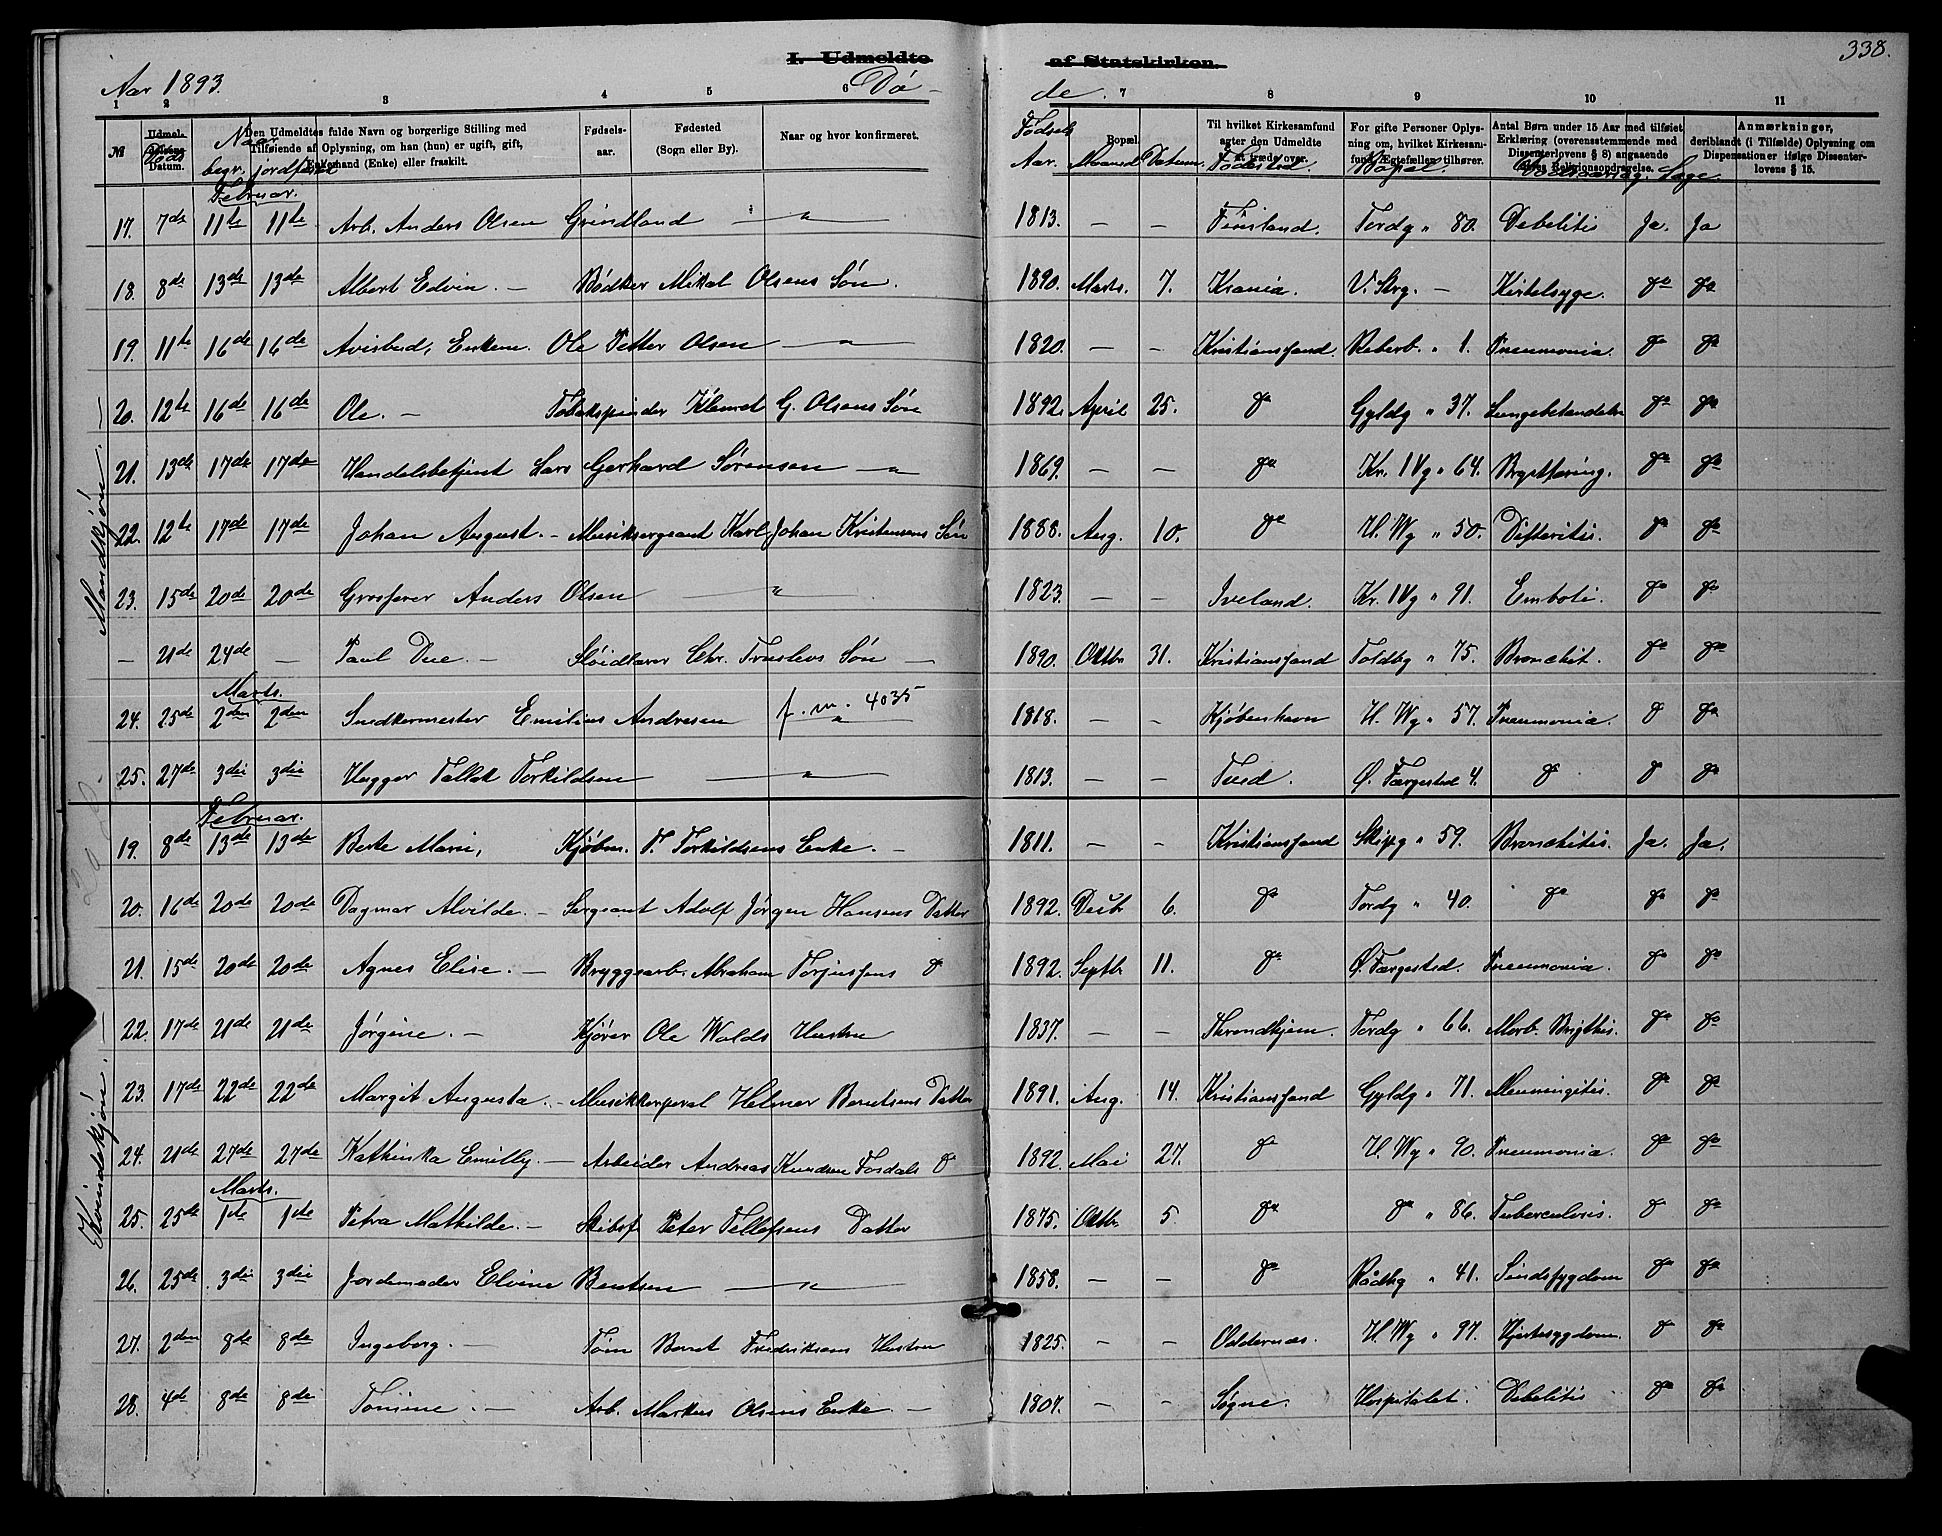 338.
Aar 1893.
I. Udmeldte af Statskirken.
Dö- de.
1 2 3 4 5 6 7 8 9 10 11
№ Udmeldelsens Datum. Den Udmeldtes fulde Navn og borgerlige Stilling med Tilføiende af Oplysning, om han (hun) er ugift, gift, Enkemand (Enke) eller fraskilt. Fødselsaar. Fødested (Sogn eller By). Naar og hvor konfirmeret. Bopæl. Til hvilket Kirkesamfund agter den Udmeldte at træde over. For gifte Personer Oplysning om, hvilket Kirkesamfund Ægtefællen tilhører. Antal Børn under 15 Aar med tilføiet Erklæring (overensstemmende med Dissenterlovens § 8) angaaende deres Religionsopdragelse. Anmærkninger, deriblandt (i Tilfælde) Oplysning om Dispensationer ifølge Dissenterlovens § 15.
Döds Naar begr. jordfæstet Födsels Aar. Maaned Datum. Födested. Bopæl. Dödsaarsag. Læge.
Mandkjön. —
Februar.
17. 7de 11te 11te Arb. Anders Olsen Grindland — " — 1813. — — Finsland. Tordg " 80. Debelitis Ja. Ja
18. 8de 13de 13de Albert Edvin. — Bødker Mikal Olsens Søn. 1890. Marts. 7. Krania. V. Strg. — Kirtelsyge. do do
19. 11te 16de 16de Enkem. Ole Petter Olsen — " — 1820. — — Kristianssand. Reberb. " 1. Pneumonia. do do
20. 12te 16de 16de Ole. — Tobakspinder Klemet G. Olsens Søn 1892. April 25. do Gyldg " 37. Lungebetændelse do do
21. 13de 17de 17de Handelsbetjent Lars Gerhard Sørensen — " — 1869. — — do Kr. IVg " 64. Brysttæring. do do
22. 12te 17de 17de Johan August. — Musiksergeant Karl Johan Kristensens Søn 1888. Aug. 10. do H. Wg " 50. Difteritis. do do
23. 15de 20de 20de Grosserer Anders Olsen — " 1823. — — Iveland. Kr. IVg " 91. Emboli. do do
— 21de 24de — Paul Due. — Sløidlærer Chr. Søn — 1890. Oktbr 31. Kristianssand Toldbg " 75. Bronchit. do do
Marts.
24. 25de 2den 2den Snedkermester Emilius Andresen f. m. 4035 " 1818. — — Kjøbenhavn H. Wg " 57. Pneumonia. do do
25. 27de 3die 3die Hugger Tallak Torkildsen — " — 1813. — — Tveid. Ø. Færgested 4. do do do
Kvindekjön. —
Februar.
19. 8de 13de 13de Berte Marie, Kjøbm. T. Torkildsens Enke. — 1811. — — Kristianssand Skipg " 59. Bronchitis. Ja. Ja.
20. 16de 20de 20de Dagmar Alvilde. — Sergeant Adolf Jørgen Hansens Datter 1892. Decbr 6. do Tordg " 40. do do do
21. 15de 20de 20de Agnes Elise. — Bryggearb. Abraham Torjussens do 1892. Septbr 11. do Ø. Færgested. Pneumonia. do do
22. 17de 21de 21de Jørgine. — Kjører Ole Walds Hustru 1837. — — Throndhjem. Tordg " 66. Morb. Brigthis. do do
23. 17de 22de 22de Margit Augusta. — Musikkorporal Helmer Berntsens Datter 1891. Aug. 14. Kristianssand Gyldg " 71. Menningitis. do do
24. 21de 27de 27de Kathinka Emilly. — Arbeider Andreas Knudsen Fosdals do 1892. Mai 27. do H. Wg " 90. Pneumonia. do do
Marts.
25. 25de 1ste 1ste Petra Mathilde. — Skibsf Peter Tellefsens Datter 1875. Oktbr 5 do do " 86. Tuberculosis. do do
26. 25de 3die 3die Jordemoder Elvine Bentsen — " — 1858. — — do Rådhg " 41. Sindssygdom do do
27. 2den 8de 8de Ingeborg. — Tøm Berret Fredriksens Hustru 1825. — — Oddernæs. H. Wg " 97. Hjertesygdom. do do
28. 4de 8de 8de Tomine. — Arb. Markus Olsens Enke. — 1807. — — Søgne. Hospitalet. Debelitis do do